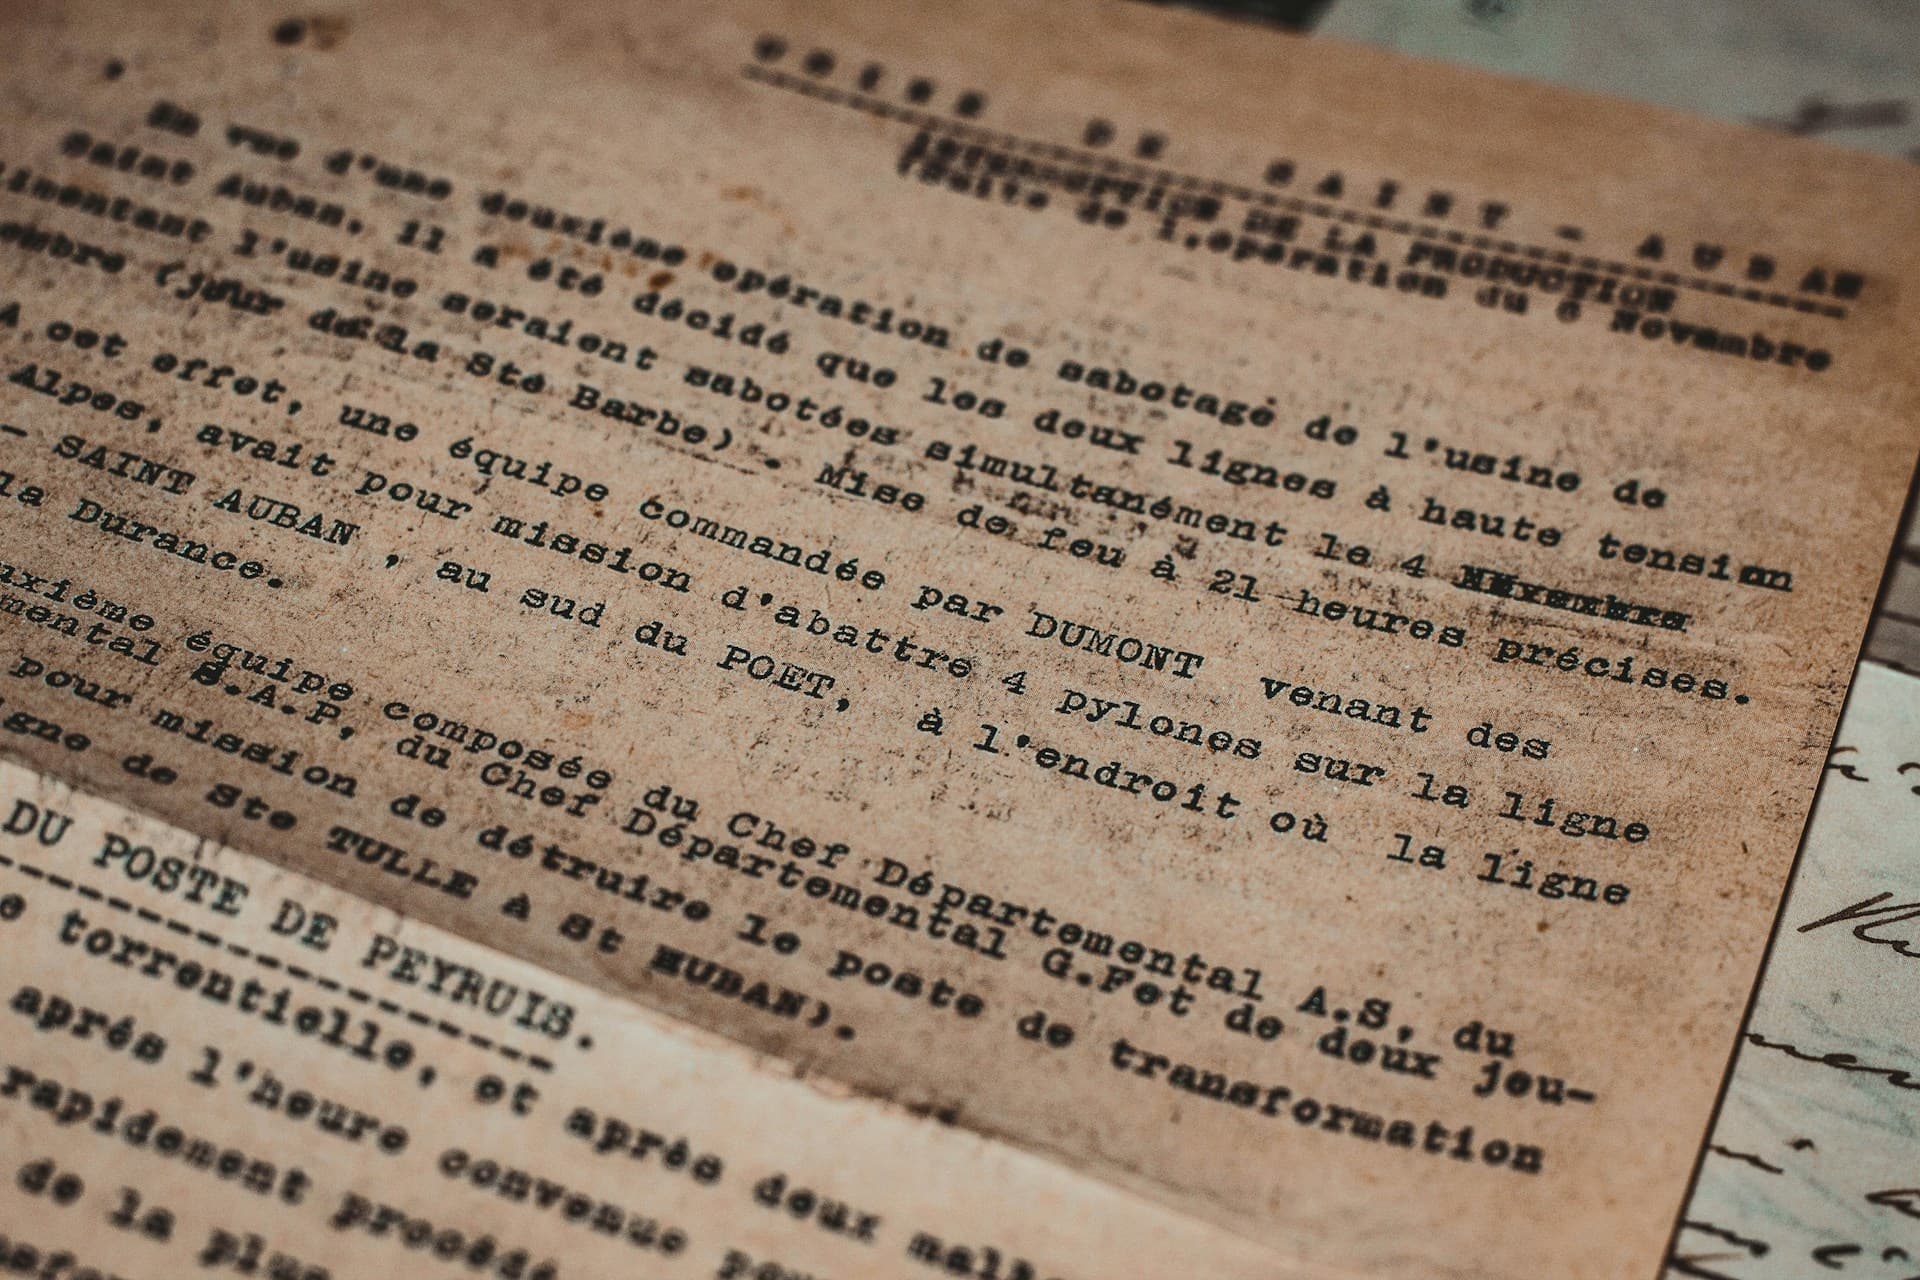 U S I N E  D E  S A I N T - A U B AN
INTERRUPTION DE LA PRODUCTION
(Suite de l'opération du 6 Novembre
En vue d'une deuxième opération de sabotage de l'usine de
Saint Auban, il a été décidé que les deux lignes à haute tension
imentant l'usine seraient sabotées simultanément le 4
embre (jour de la Sté Barbe). Mise de feu à 21 heures précises.
A cet effet, une équipe commandée par DUMONT venant des
Alpes, avait pour mission d'abattre 4 pylones sur la ligne
- SAINT AUBAN , au sud du POET, à l'endroit où la ligne
la Durance.
uxième équipe composée du Chef Départemental A.S, du
mental S.A.P, du Chef Départemental G.F et de deux jeu-
pour mission de détruire le poste de transformation
gne de Ste TULLE A St AUBAN).
DU POSTE DE PEYRUIS.
e torrentielle, et aprés deux malh
aprés l'heure convenue pou
rapidement procédé
de la plus
nsfor